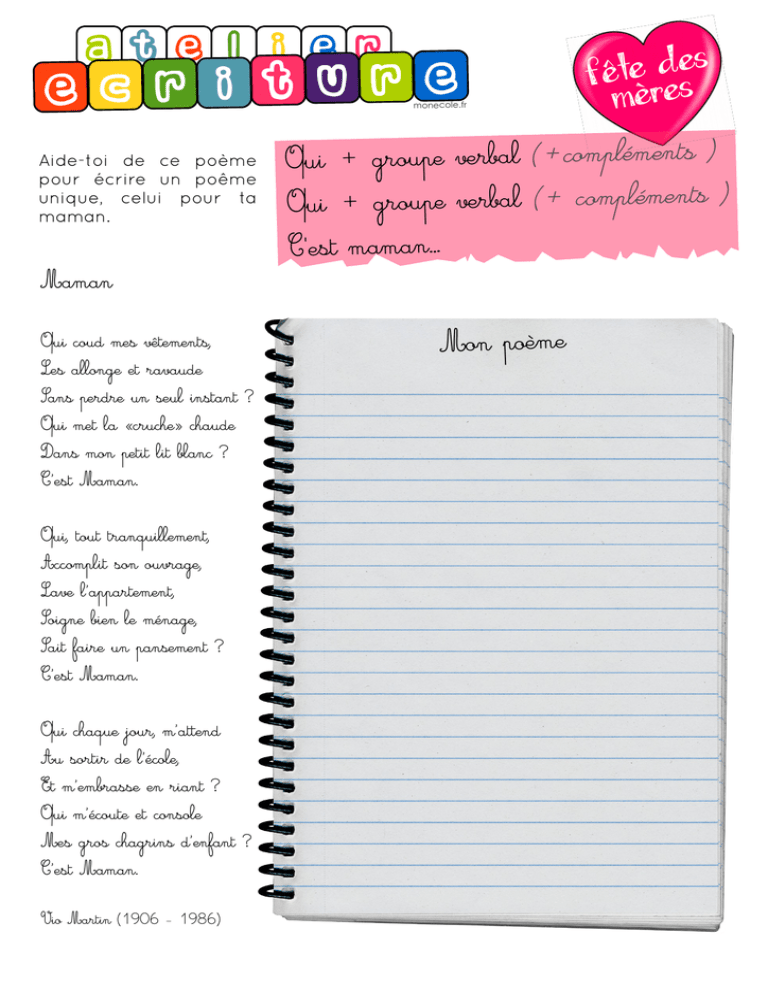 atelier
ecriture
monecole.fr
fête des
mères
Aide-toi de ce poème
pour écrire un poême
unique, celui pour ta
maman.
Qui + groupe verbal (+compléments )
Qui + groupe verbal (+ compléments )
C'est maman...
Maman
Qui coud mes vêtements,
Les allonge et ravaude
Sans perdre un seul instant ?
Qui met la «cruche» chaude
Dans mon petit lit blanc ?
C'est Maman.
Qui, tout tranquillement,
Accomplit son ouvrage,
Lave l'appartement,
Soigne bien le ménage,
Sait faire un pansement ?
C'est Maman.
Qui chaque jour, m'attend
Au sortir de l'école,
Et m'embrasse en riant ?
Qui m'écoute et console
Mes gros chagrins d'enfant ?
C'est Maman.
Vio Martin (1906 - 1986)
Mon poème